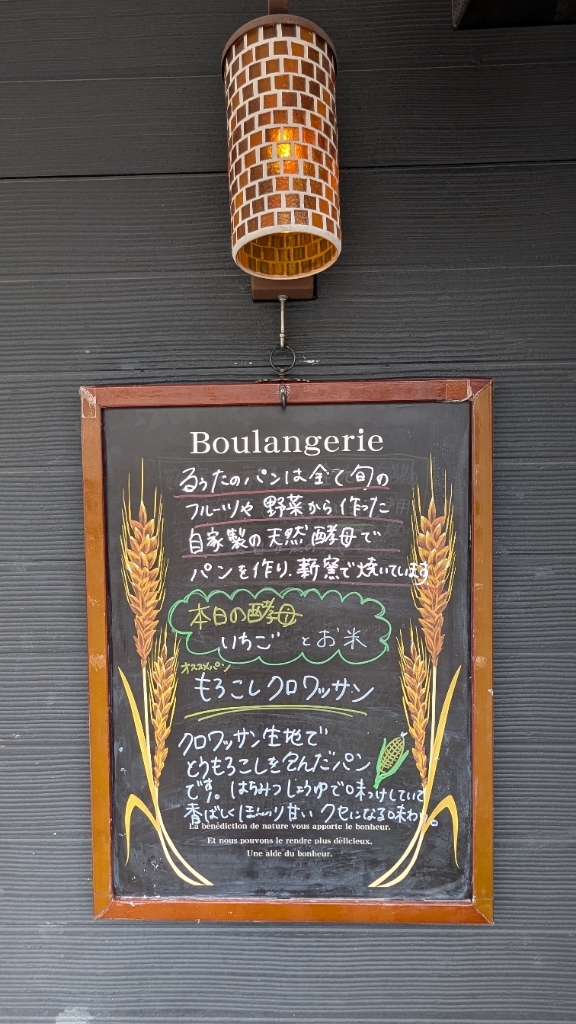 Boulangerie
るぅたのパンは全て旬の
フルーツや野菜から作った
自家製の天然酵母で
パンを作り、薪窯で焼いています
本日の酵母
いちごとお米
オススメパン
もろこしクロワッサン
クロワッサン生地で
とうもろこしを包んだパン
です。はちみつしょうゆで味つけしていて
香ばしくほんのり甘いクセになる味わい。
La bénédiction de nature vous apporte le bonheur.
Et nous pouvons le rendre plus délicieux.
Une aide du bonheur.